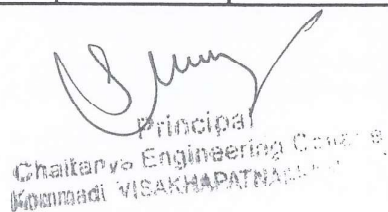 Principal
Chaitanya Engineering
Kommadi VISAKHAPATNAM